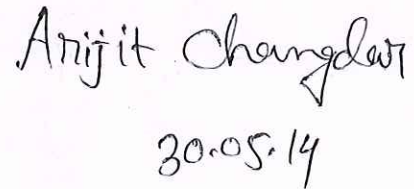 Arijit Changdar
30.05.14